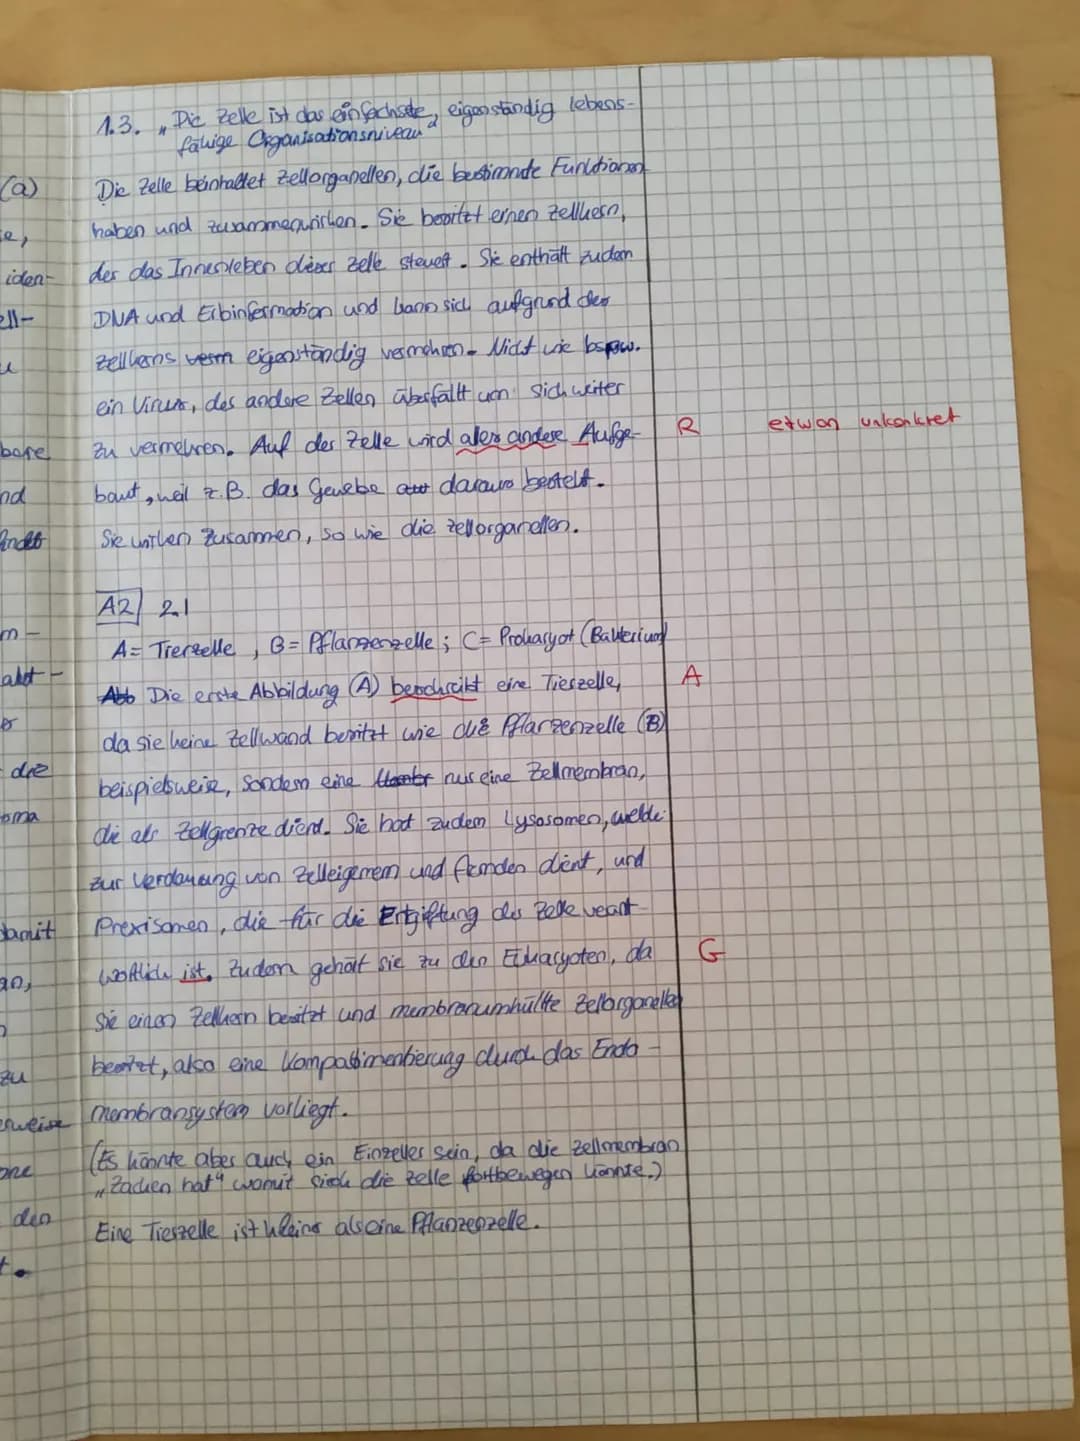 1.3. „Die Zelle ist das einfachste, eigenständig lebens-
fähige Organisationsniveau"
(a)
Die Zelle beinhaltet Zellorganellen, die bestimmte Funktionen
haben und zusammenwirken. Sie besitzt einen Zellkern,
iden-
der das Innenleben dieser Zelle steuert. Sie enthält zudem
ell-
DNA und Erbinformation und kann sich aufgrund des
Zellkerns eigenständig vermehren. Nicht wie bspw.
ein Virus, des andere Zellen überfällt um sich weiter
zu vermehren. Auf der Zelle wird alles andere Aufge- R etwas unkonkret
bare
baut, weil z.B. das Gewebe daraus besteht.
nd
Sie wirken zusammen, so wie die Zellorganellen.
findet
A2 2.1
m-
A= Tierzelle, B= Pflanzenzelle; C= Prokaryot (Bakterium)
Abb Die erste Abbildung (A) beschreibt eine Tierzelle, A
da sie keine Zellwand besitzt wie die Pflanzenzelle (B)
die
beispielsweise, sondern eine nur eine Zellmembran,
oma
die als Zellgrenze dient. Sie hat zudem Lysosomen, welche
zur Verdauung von Zelleigenem und fremden dient, und
Prexisomen, die für die Entgiftung des Zelle verant-
damit
wortlich ist. Zudem gehört sie zu den Eukaryoten, da G
an,
sie einen Zellkern besitzt und membranumhüllte Zellorganellen
besitzt, also eine Kompartimentierung durch das Endo-
zu
membransystem vorliegt.
sweise
(Es könnte aber auch ein Einzeller sein, da die Zellmembran
one
„Zacken hat" womit sich die Zelle fortbewegen könnte.)
den
Eine Tierzelle ist kleiner als eine Pflanzenzelle.
t.